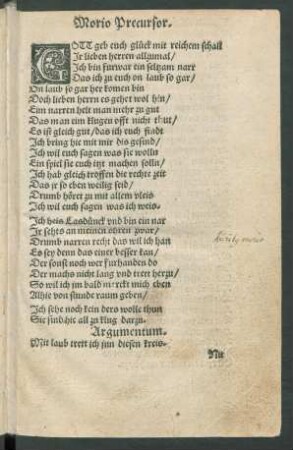 Morio Precursor.
GOTT geb euch glück mit reichem schall
Ir lieben herren allzumal/
Ich bin furwar ein seltzam narr
Das ich zu euch on laub so gar/
On laub so gar her komen bin
Doch lieben herrn es gehet wol hin/
Eim narren helt man mehr zu gut
Das man eim klugen offt nicht thut/
Es ist gleich gut/das ich euch findt
Ich bring hie mit mir dis gesind/
Ich wil euch sagen was sie wolln
Ein spiel sie euch itzt machen solln/
Ich hab gleich troffen die rechte zeit
Das je so eben weilig seid/
Drumb höret zu mit allem vleis
Ich wil euch sagen was ich weis.
Ich heis Lasdünck vnd bin ein nar
Ir sehts an meinen ohren zwar/
Drumb narren recht das wil ich han
Es sey denn das einer besser kan/
Der sonst noch wer furhanden do
Der machs nicht lang vnd trett herzu/
So wil ich im bald merckt mich eben
Alhie von stunde raum geben/
Ich sehe noch kein ders wolle thun
Sie sind hie all zu klug darzu.
Argumentum.
Mitt laub trett ich jnn diesen kreis.
Nu